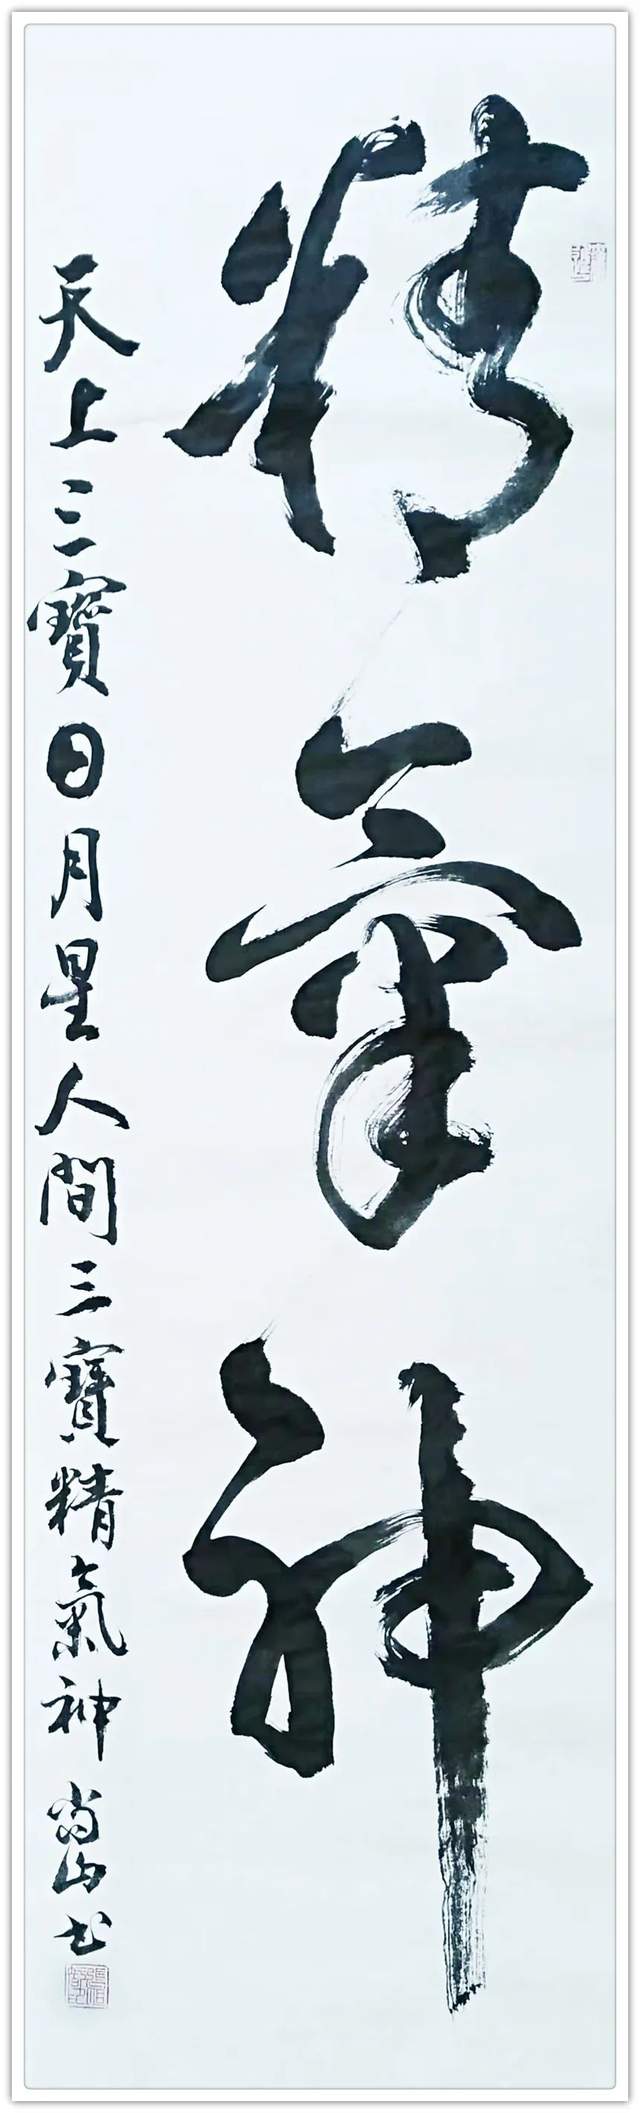 精氣神
天上三寶日月星人間三寶精氣神尚山书